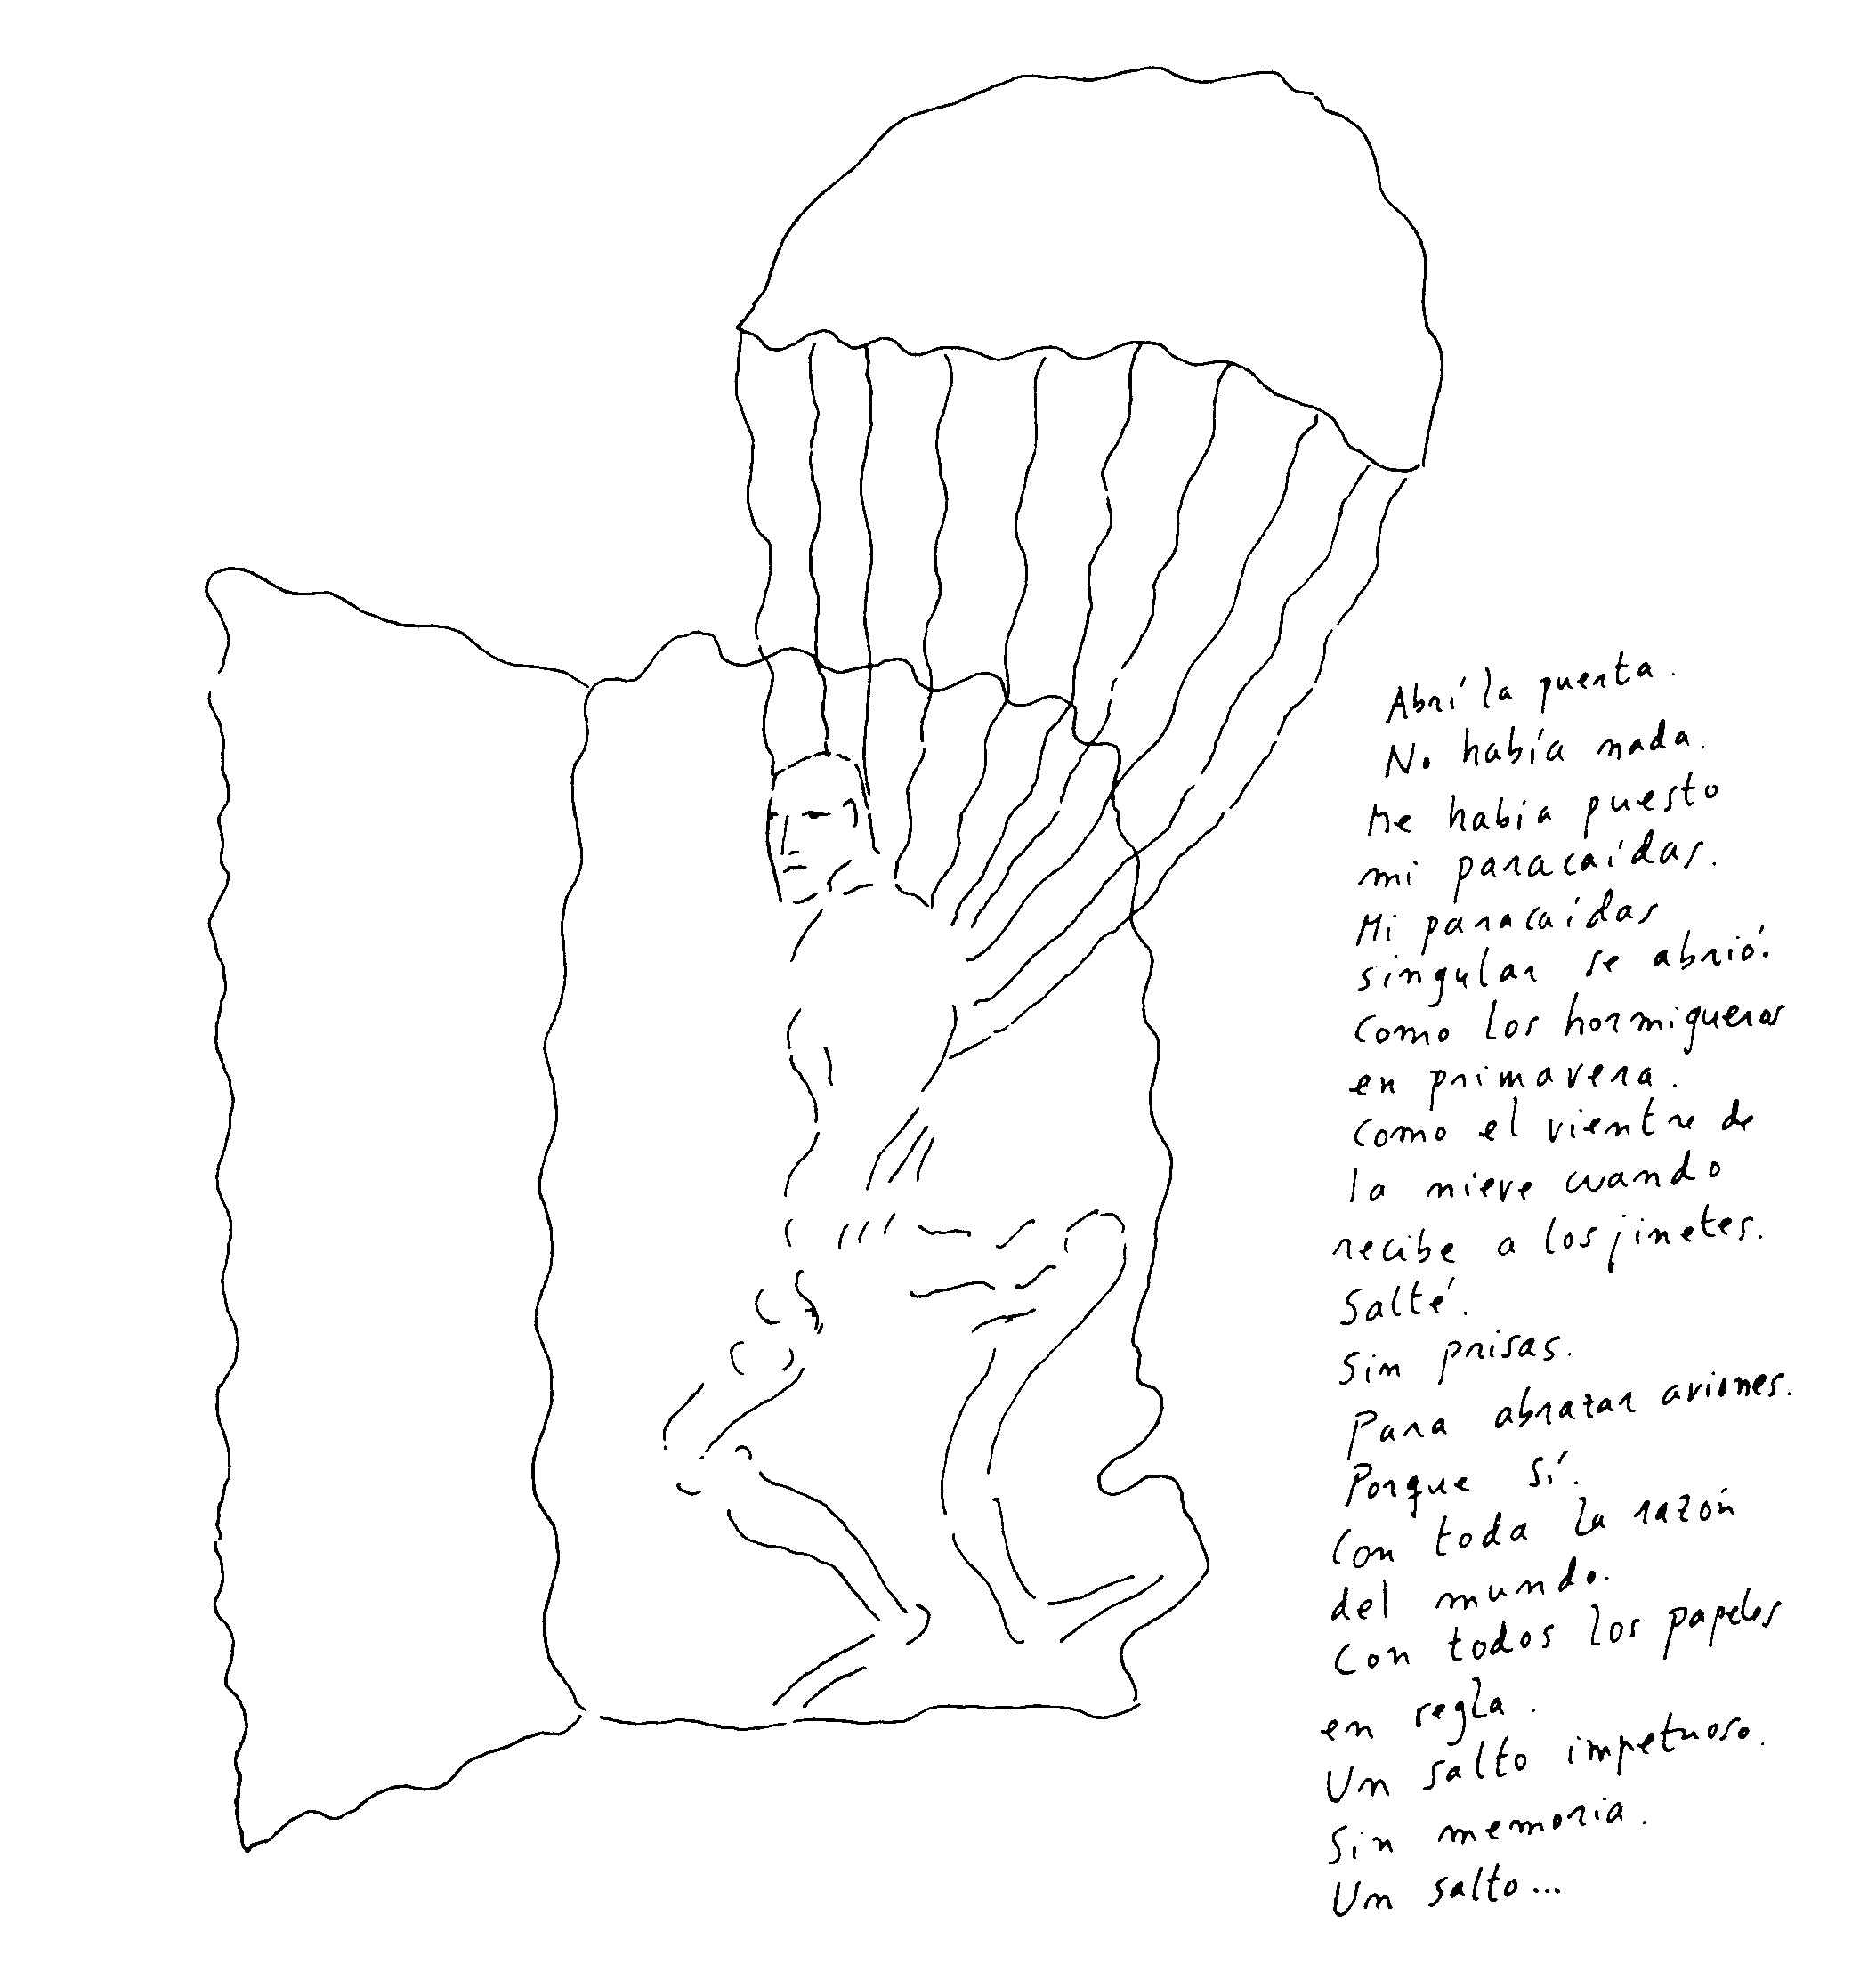 Abrí la puerta.
No había nada.
Me había puesto
mi paracaídas.
Mi paracaídas
singular se abrió.
Como los hormigueros
en primavera.
Como el vientre de
la nieve cuando
recibe a los jinetes.
Salté.
Sin prisas.
Para abrazar aviones.
Porque sí.
Con toda la razón
del mundo.
Con todos los papeles
en regla.
Un salto impetuoso.
Sin memoria.
Un salto...